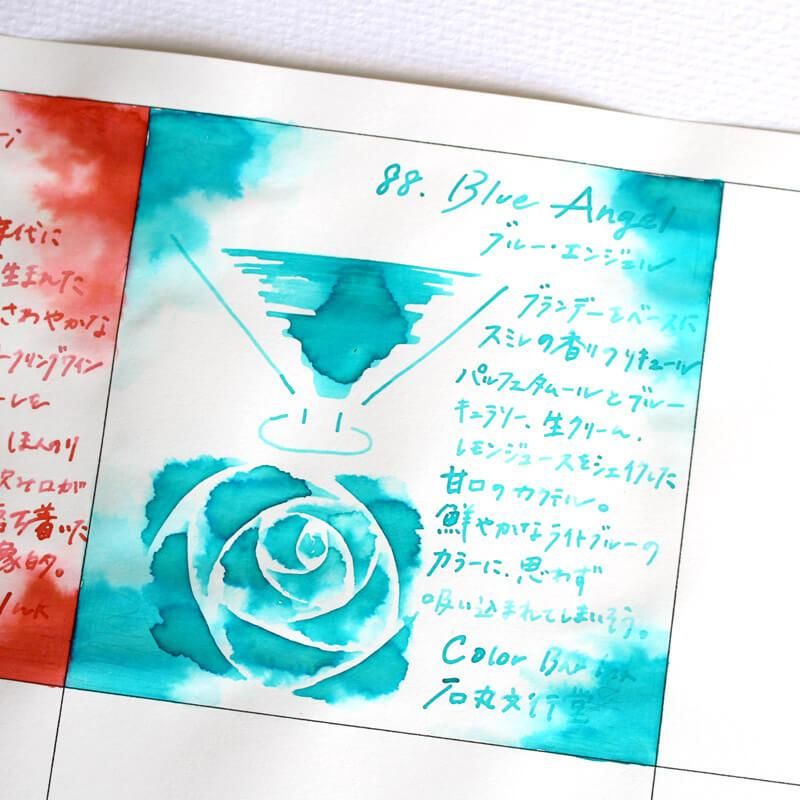 年代に
生まれた
さわやかな
ークリングワイン
ーレを
ほんのり
飲み口が
落ち着いた
象的。
Ink
88. Blue Angel
ブルー・エンジェル
ブランデーをベースに
スミレの香りのリキュール
パルフェタムールとブルー
キュラソー、生クリーム、
レモンジュースをシェイクした
甘口のカクテル。
鮮やかなライトブルーの
カラーに、思わず
吸い込まれてしまいそう。
Color Bar Ink
石丸文行堂